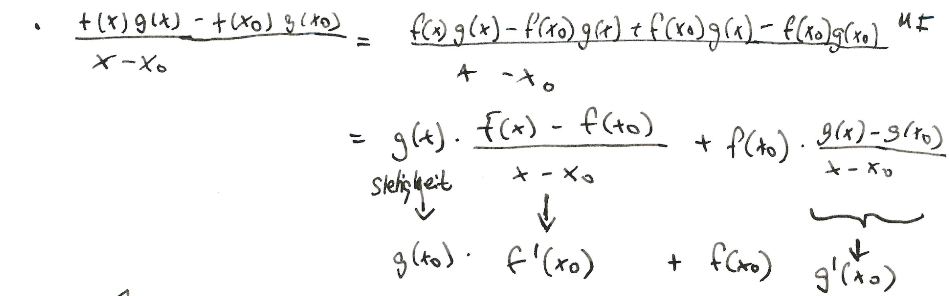 • (f(x)g(x) - f(x₀)g(x₀))/(x - x₀) = (f(x)g(x) - f(x₀)g(x) + f(x₀)g(x) - f(x₀)g(x₀))/(x - x₀)
= g(x) · (f(x) - f(x₀))/(x - x₀) + f(x₀) · (g(x) - g(x₀))/(x - x₀)
Stetigkeit
↓ ↓ ↓
g(x₀) · f'(x₀) + f(x₀) g'(x₀)